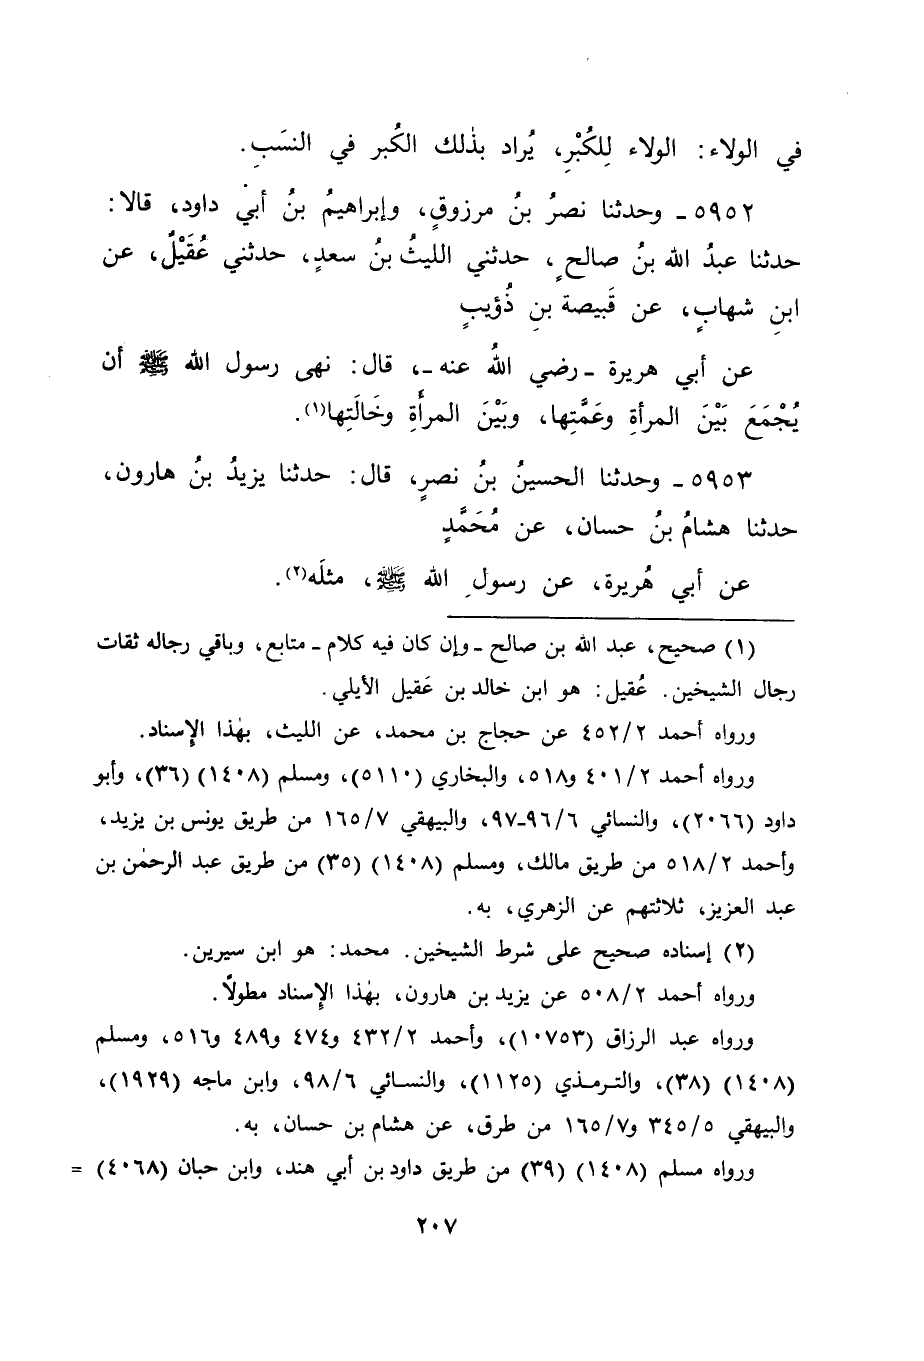 في الولاء: الولاء لِلكُبْرِ، يُراد بذٰلك الكُبر في النسَبِ.
٥٩٥٢ ـ وحدثنا نصرُ بنُ مرزوقٍ، وإبراهيمُ بنُ أبي داود، قالا:
حدثنا عبدُ الله بنُ صالحٍ، حدثني الليثُ بنُ سعدٍ، حدثني عُقَيْلٌ، عن
ابنِ شهابٍ، عن قَبيصة بنِ ذُؤيبٍ
عن أبي هريرة ـ رضي اللهُ عنه ـ، قال: نهى رسول الله ﷺ أن
يُجْمَعَ بَيْنَ المرأةِ وعَمَّتِها، وبَيْنَ المرأَةِ وخَالَتِها(١).
٥٩٥٣ ـ وحدثنا الحسينُ بنُ نصرٍ، قال: حدثنا يزيدُ بنُ هارون،
حدثنا هشامُ بنُ حسان، عن مُحَمَّدٍ
عن أبي هُريرة، عن رسولِ الله ﷺ، مثلَه(٢).
(١) صحيح، عبد الله بن صالح ـ وإن كان فيه كلام ـ متابع، وباقي رجاله ثقات
رجال الشيخين. عُقيل: هو ابن خالد بن عَقيل الأيلي.
ورواه أحمد ٤٥٢/٢ عن حجاج بن محمد، عن الليث، بهٰذا الإسناد.
ورواه أحمد ٤٠١/٢ و٥١٨، والبخاري (٥١١٠)، ومسلم (١٤٠٨) (٣٦)، وأبو
داود (٢٠٦٦)، والنسائي ٩٦/٦ـ٩٧، والبيهقي ١٦٥/٧ من طريق يونس بن يزيد،
وأحمد ٥١٨/٢ من طريق مالك، ومسلم (١٤٠٨) (٣٥) من طريق عبد الرحمٰن بن
عبد العزيز، ثلاثتهم عن الزهري، به.
(٢) إسناده صحيح على شرط الشيخين. محمد: هو ابن سيرين.
ورواه أحمد ٥٠٨/٢ عن يزيد بن هارون، بهٰذا الإسناد مطولاً.
ورواه عبد الرزاق (١٠٧٥٣)، وأحمد ٤٣٢/٢ و٤٧٤ و٤٨٩ و٥١٦، ومسلم
(١٤٠٨) (٣٨)، والترمذي (١١٢٥)، والنسائي ٩٨/٦، وابن ماجه (١٩٢٩)،
والبيهقي ٣٤٥/٥ و١٦٥/٧ من طرق، عن هشام بن حسان، به.
ورواه مسلم (١٤٠٨) (٣٩) من طريق داود بن أبي هند، وابن حبان (٤٠٦٨) =
٢٠٧